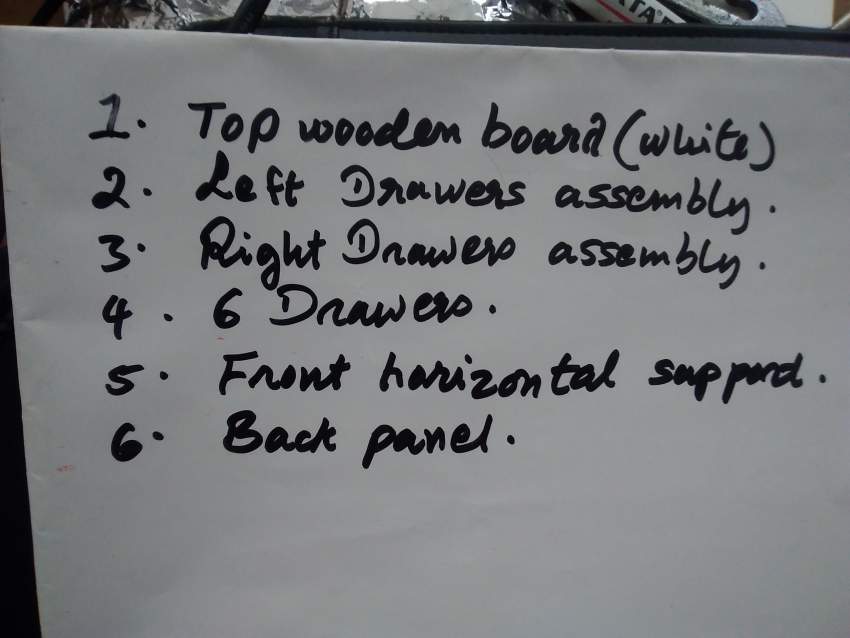 1. Top wooden board (white)
2. Left Drawers assembly.
3. Right Drawers assembly.
4. 6 Drawers.
5. Front horizontal support.
6. Back panel.